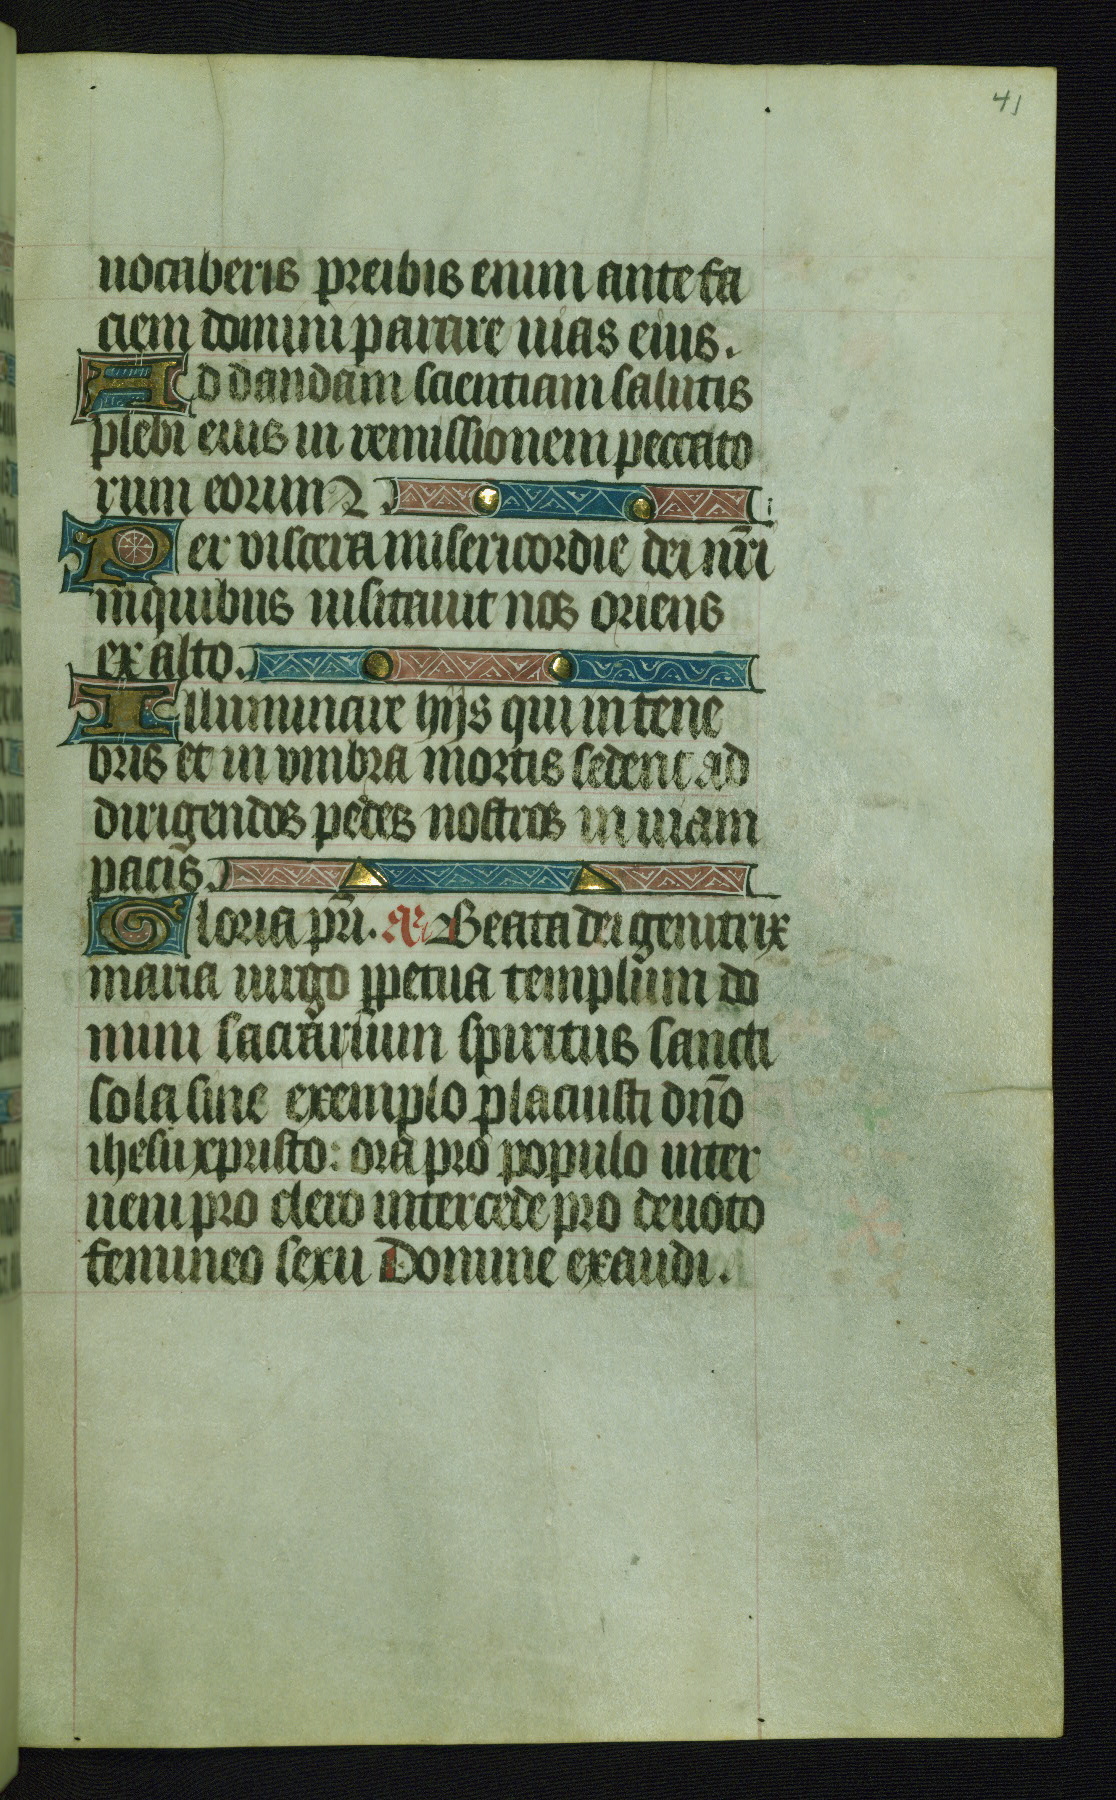 41
uocaberis preibis enim ante fa
ciem domini parare uias eius.
Ad dandam scientiam salutis
plebi eius in remissionem peccato
rum eorum
Per viscera misericordie dei nr̄i
in quibus uisitauit nos oriens
ex alto.
Illuminare hijs qui in tene
bris et in vmbra mortis sedent ad
dirigendos pedes nostros in uiam
pacis.
Gloria pr̄i. Añ Beata dei genitrix
maria uirgo ꝑpetua templum do
mini sacrarium spiritus sancti
sola sine exemplo placuisti dn̄o
ihesu xpristo: ora pro populo inter
ueni pro clero intercede pro deuoto
femineo sexu Domine exaudi.